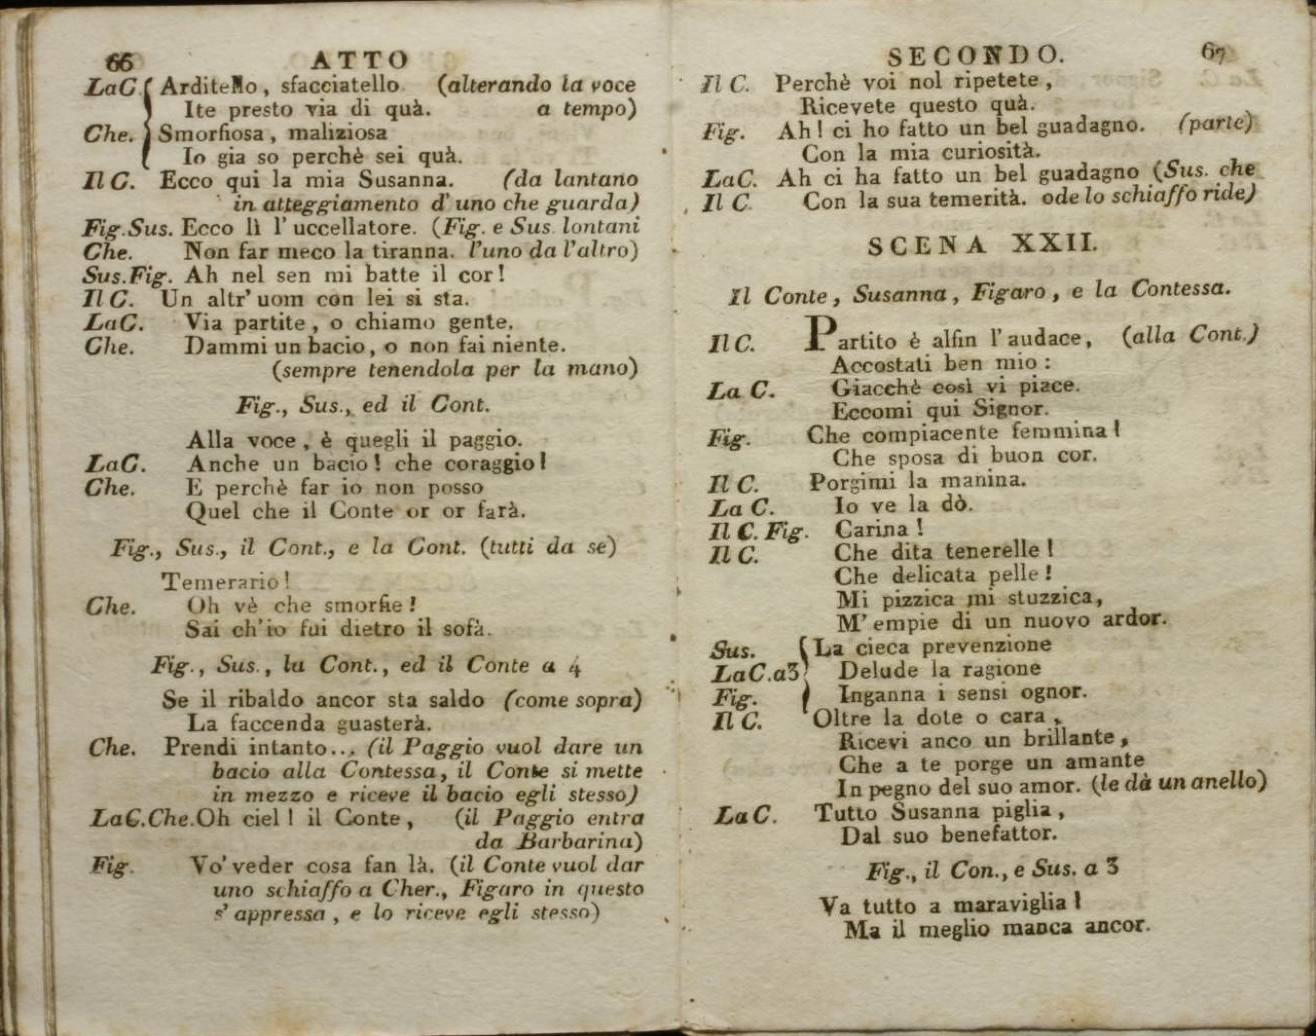 66 ATTO
La C. Arditello, sfacciatello (alterando la voce
Ite presto via di quà. a tempo)
Che. Smorfiosa, maliziosa
Io gia so perchè sei quà.
Il C. Ecco qui la mia Susanna. (da lantano
in atteggiamento d'uno che guarda)
Fig. Sus. Ecco lì l'uccellatore. (Fig. e Sus. lontani
Che. Non far meco la tiranna. l'uno da l'altro)
Sus. Fig. Ah nel sen mi batte il cor!
Il C. Un altr'uom con lei si sta.
La C. Via partite, o chiamo gente.
Che. Dammi un bacio, o non fai niente.
(sempre tenendola per la mano)
Fig., Sus., ed il Cont.
Alla voce, è quegli il paggio.
La C. Anche un bacio! che coraggio!
Che. E perchè far io non posso
Quel che il Conte or or farà.
Fig., Sus., il Cont., e la Cont. (tutti da se)
Temerario!
Che. Oh vè che smorfie!
Sai ch'io fui dietro il sofà.
Fig., Sus., la Cont., ed il Conte a 4
Se il ribaldo ancor sta saldo (come sopra)
La faccenda guasterà.
Che. Prendi intanto... (il Paggio vuol dare un
bacio alla Contessa, il Conte si mette
in mezzo e riceve il bacio egli stesso)
La C. Che. Oh ciel! il Conte, (il Paggio entra
da Barbarina)
Fig. Vo' veder cosa fan là. (il Conte vuol dar
uno schiaffo a Cher., Figaro in questo
s'appressa, e lo riceve egli stesso)
SECONDO. 67
Il C. Perchè voi nol ripetete,
Ricevete questo quà.
Fig. Ah! ci ho fatto un bel guadagno. (parte)
Con la mia curiosità.
La C. Ah ci ha fatto un bel guadagno (Sus. che
Il C. Con la sua temerità. ode lo schiaffo ride)
SCENA XXII.
Il Conte, Susanna, Figaro, e la Contessa.
Il C. Partito è alfin l'audace, (alla Cont.)
Accostati ben mio:
La C. Giacchè così vi piace.
Eccomi qui Signor.
Fig. Che compiacente femmina!
Che sposa di buon cor.
Il C. Porgimi la manina.
La C. Io ve la dò.
Il C. Fig. Carina!
Il C. Che dita tenerelle!
Che delicata pelle!
Mi pizzica mi stuzzica,
M'empie di un nuovo ardor.
Sus. La cieca prevenzione
La C. a3 Delude la ragione
Fig. Inganna i sensi ognor.
Il C. Oltre la dote o cara,
Ricevi anco un brillante,
Che a te porge un amante
In pegno del suo amor. (le dà un anello)
La C. Tutto Susanna piglia,
Dal suo benefattor.
Fig., il Con., e Sus. a 3
Va tutto a maraviglia!
Ma il meglio manca ancor.